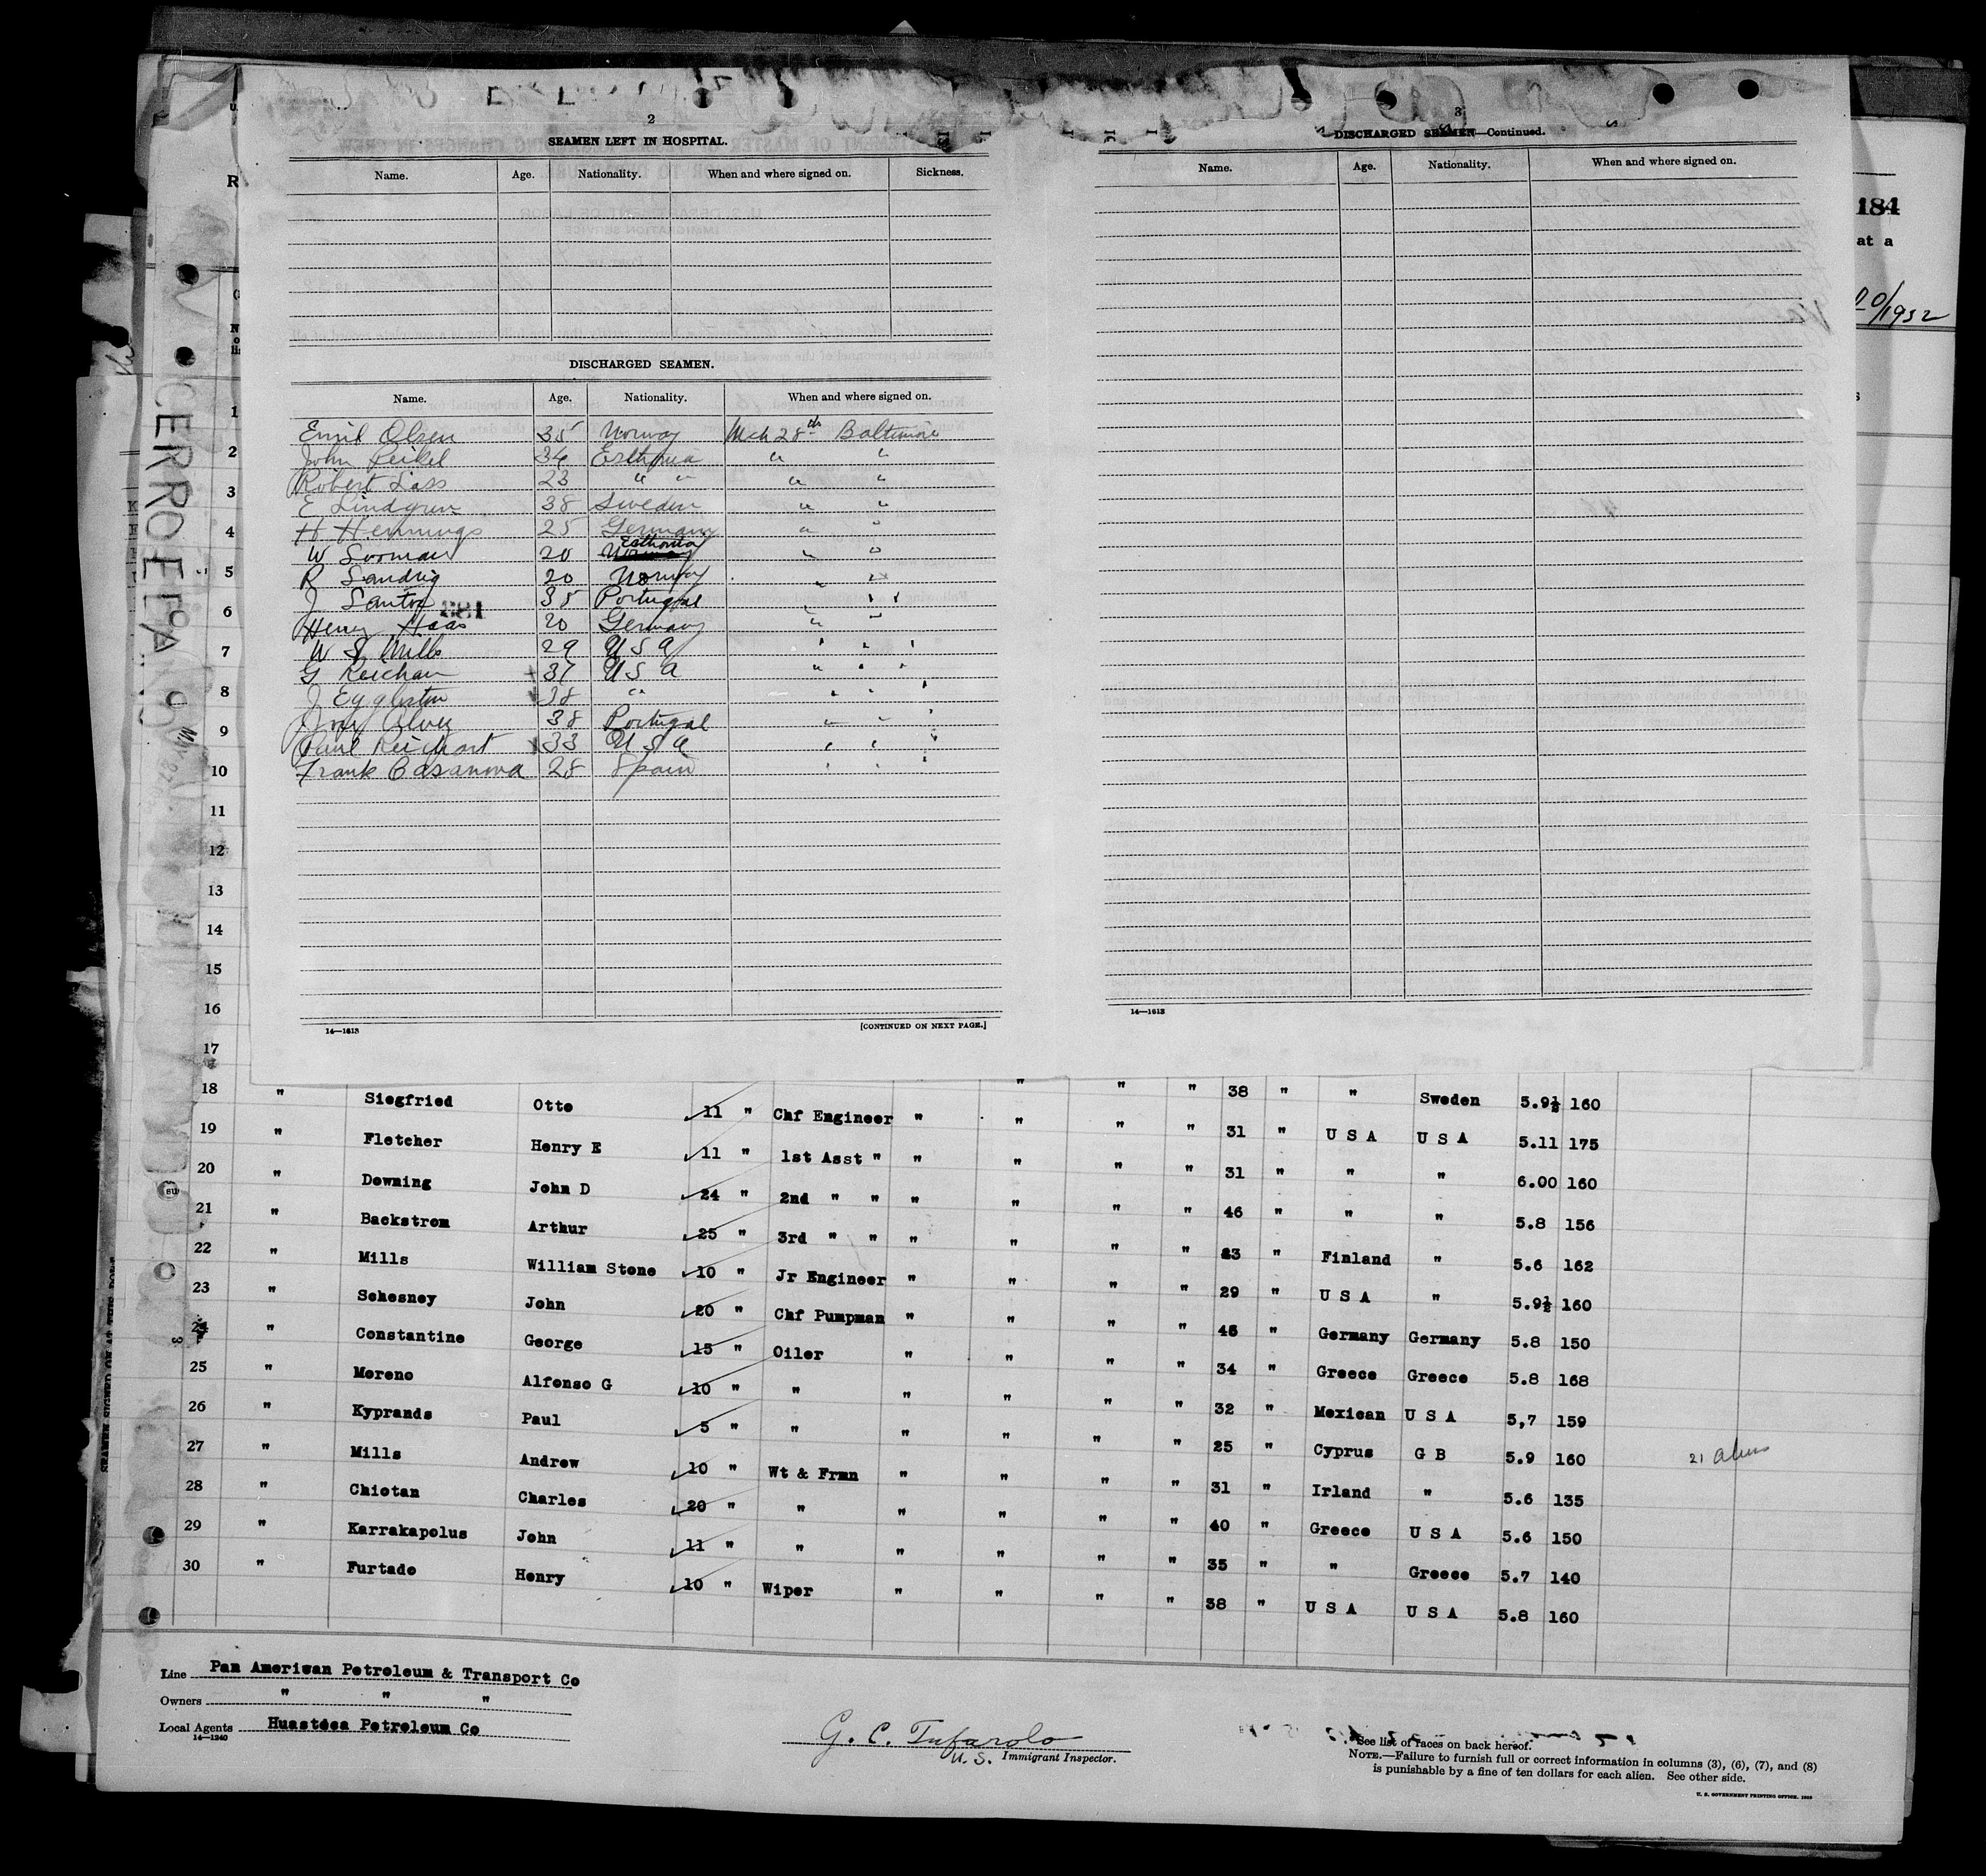 2
SEAMEN LEFT IN HOSPITAL.
Name. Age. Nationality. When and where signed on. Sickness.
DISCHARGED SEAMEN.
Name. Age. Nationality. When and where signed on.
Emil Olsen 35 Norway Mch 28th Baltimore
John 34 Esthonia " "
Robert Lass 23 " " " "
E Lindgren 38 Sweden " "
H Hennings 25 Germany " "
W Sooman 20 Esthonia " "
R 20 Norway " "
J Santos 38 Portugal " "
Henry Haas 20 Germany " "
W S Mills 29 U S A " " "
G 37 U S A " " "
J Eggleston 38 " " " "
Alvez 38 Portugal " " "
Paul Reichart 33 U S A " " "
Frank Casanova 28 Spain " " "
14—1613 [CONTINUED ON NEXT PAGE.]
3
DISCHARGED SEAMEN—Continued.
Name. Age. Nationality. When and where signed on.
14—1613
184
at a
/1932
R
CERRO EBANO
1
2
3
4
5
6
7
8
9
10
11
12
13
14
15
16
17
" " " 38 " " Sweden 5.9½ 160
18 " Siegfried Otto 11 " Chf Engineer " " " " 31 " U S A U S A 5.11 175
19 " Fletcher Henry E 11 " 1st Asst " " " " " 31 " " " 6.00 160
20 " Downing John D 24 " 2nd " " " " " " 46 " " " 5.8 156
21 " Backstrom Arthur 25 " 3rd " " " " " " 23 " Finland " 5.6 162
22 " Mills William Stone 10 " Jr Engineer " " " " 29 " U S A " 5.9½ 160
23 " Schesney John 20 " Chf Pumpman " " " " 45 " Germany Germany 5.8 150
24 " Constantine George 15 " Oiler " " " " 34 " Greece Greece 5.8 168
25 " Moreno Alfonso G 10 " " " " " " 32 " Mexican U S A 5,7 159
26 " Kyprands Paul 5 " " " " " " 25 " Cyprus G B 5.9 160
27 " Mills Andrew 10 " Wt & Frmn " " " " 31 " Irland " 5.6 135
28 " Chiotan Charles 20 " " " " " " 40 " Greece U S A 5.6 150
29 " Karrakapolus John 11 " " " " " " 35 " " Greece 5.7 140
30 " Furtado Henry 10 " Wiper " " " " 38 " U S A U S A 5.8 160
21 aliens
Line PanAmeriwan Petroleum & Transport Co
Owners " " "
Local Agents Huasteca Petroleum Co
14—1240
G. C. Tufarolo
U. S. Immigrant Inspector.
See list of races on back hereof.
NOTE.—Failure to furnish full or correct information in columns (3), (6), (7), and (8)
is punishable by a fine of ten dollars for each alien. See other side.
U. S. GOVERNMENT PRINTING OFFICE.